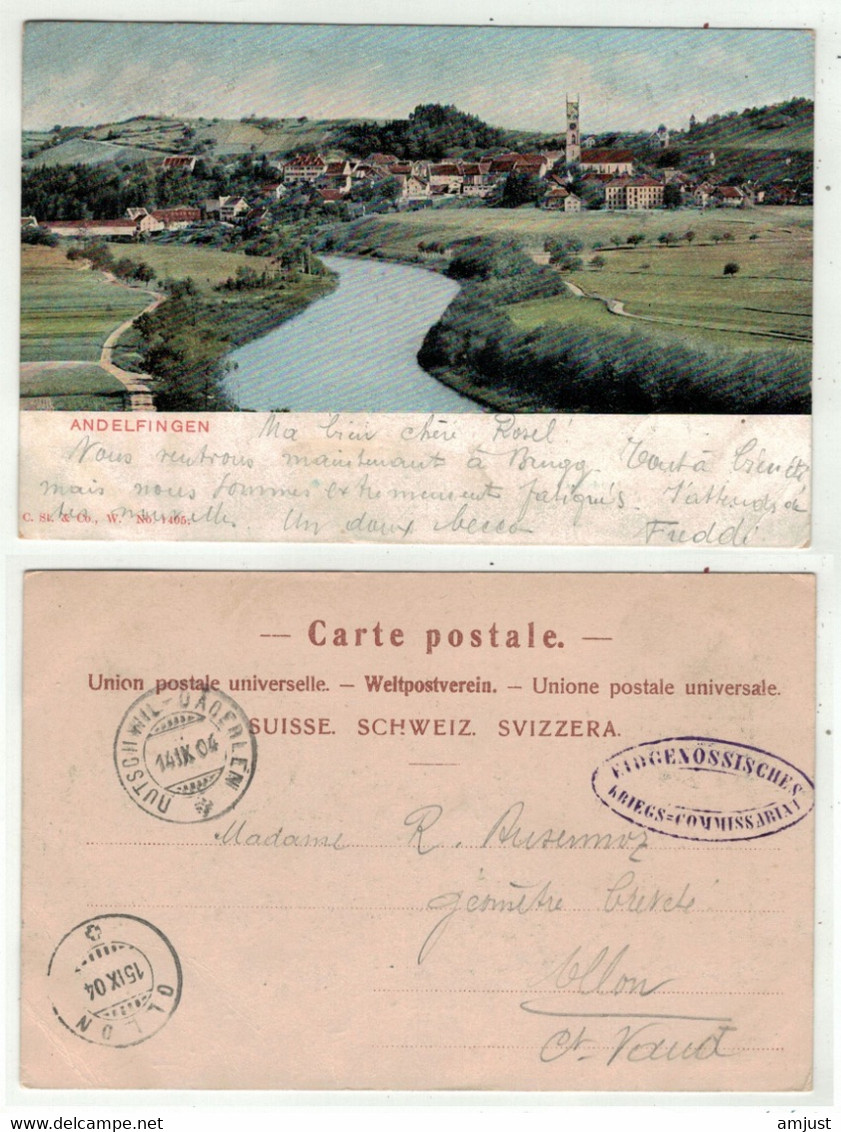 ANDELFINGEN
Ma bien chère Rosel!
Nous rentrons maintenant à Brugg. Tout à bien été
mais nous sommes extrêmement fatigués. J'attends de
tes nouvelles. Un doux becco Freddi
C. St. & Co., W. No. 1405.
— Carte postale. —
Union postale universelle. — Weltpostverein. — Unione postale universale.
SUISSE. SCHWEIZ. SVIZZERA.
NUTSCHWIL-DÄGERLEN
14 IX 04
EIDGENÖSSISCHES
KRIEGS=COMMISSARIAT
Madame R. Ansermoz
géomètre breveté
Ollon
Ct. Vaud
OLLON
15 IX 04
amjust